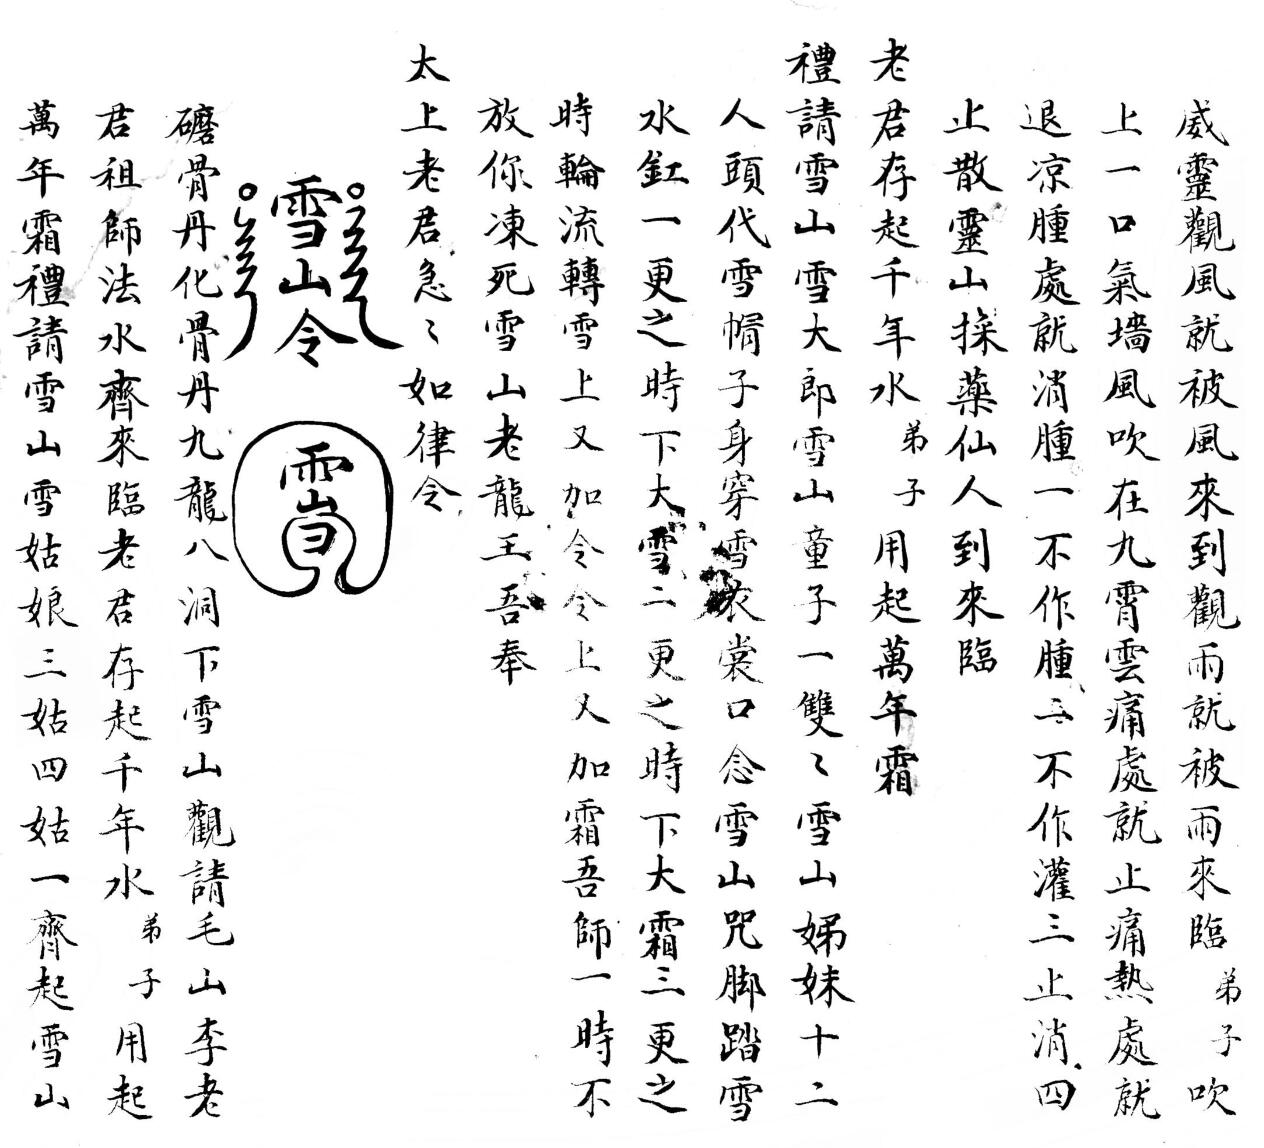 威靈觀風就被風來到觀雨就被雨來臨弟子吹
上一口氣墻風吹在九霄雲痛處就止痛熱處就
退凉腫處就消腫一不作腫二不作灌三止消四
止散靈山採藥仙人到來臨
老君存起千年水弟子用起萬年霜
禮請雪山雪大郎雪山童子一雙〻雪山娣妹十二
人頭代雪帽子身穿雪衣裳口念雪山咒脚踏雪
水缸一更之時下大雪二更之時下大霜三更之
時輪流轉雪上又加令令上又加霜吾師一時不
放你凍死雪山老龍王吾奉
太上老君急〻如律令
雪山令
礳骨丹化骨丹九龍八洞下雪山觀請毛山李老
君祖師法水齊來臨老君存起千年水弟子用起
萬年霜禮請雪山雪姑娘三姑四姑一齊起雪山